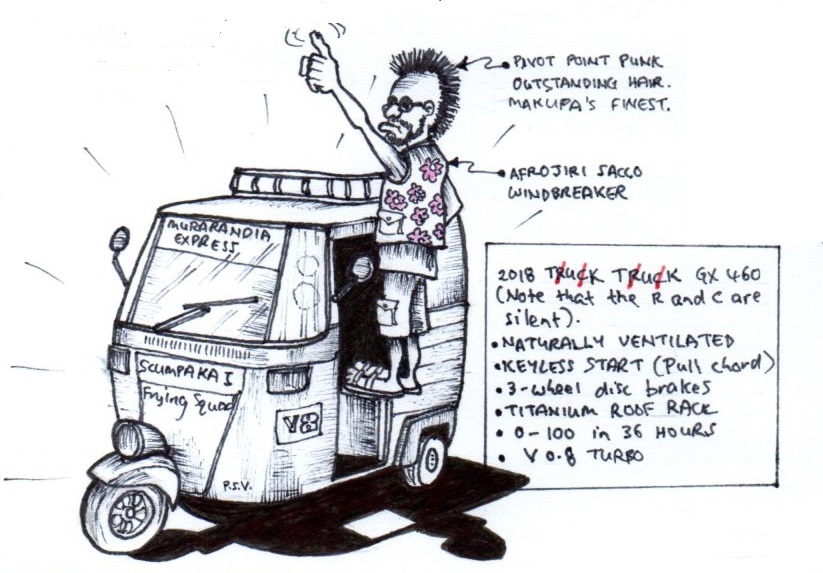 PIVOT POINT PUNK
OUTSTANDING HAIR.
MAKUPA'S FINEST.
AFROJIRI SACCO
WINDBREAKER
MURARANDIA
EXPRESS
SCUMPAKA I
Frying Squad
V8
P.S.V.
2018 TRUCK TRUCK GX 460
(Note that the R and C are
silent).
• NATURALLY VENTILATED
• KEYLESS START (Pull chord)
• 3-wheel disc brakes
• TITANIUM ROOF RACK
• 0-100 in 36 HOURS
• V 0.8 TURBO